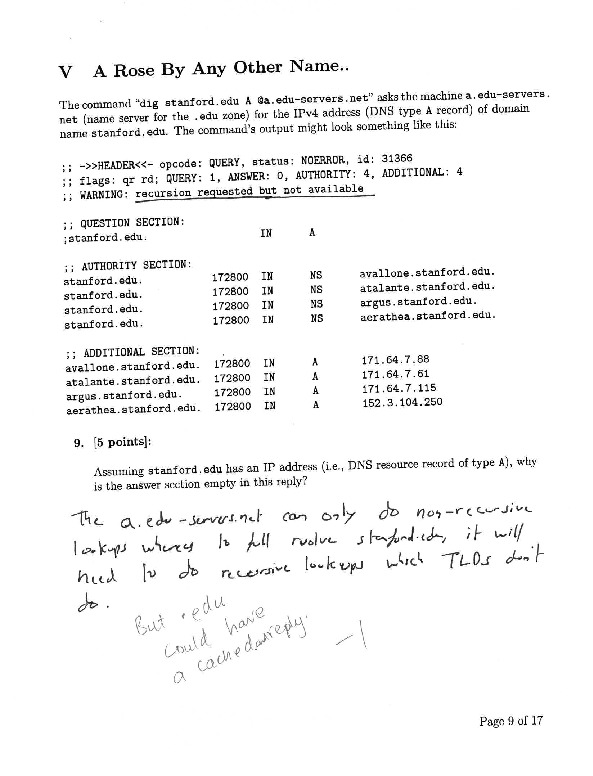 V A Rose By Any Other Name..
The command "dig stanford.edu A @a.edu-servers.net" asks the machine a.edu-servers.
net (name server for the .edu zone) for the IPv4 address (DNS type A record) of domain
name stanford.edu. The command's output might look something like this:
;; ->>HEADER<<- opcode: QUERY, status: NOERROR, id: 31366
;; flags: qr rd; QUERY: 1, ANSWER: 0, AUTHORITY: 4, ADDITIONAL: 4
;; WARNING: recursion requested but not available
;; QUESTION SECTION:
;stanford.edu. IN A
;; AUTHORITY SECTION:
stanford.edu. 172800 IN NS avallone.stanford.edu.
stanford.edu. 172800 IN NS atalante.stanford.edu.
stanford.edu. 172800 IN NS argus.stanford.edu.
stanford.edu. 172800 IN NS aerathea.stanford.edu.
;; ADDITIONAL SECTION:
avallone.stanford.edu. 172800 IN A 171.64.7.88
atalante.stanford.edu. 172800 IN A 171.64.7.61
argus.stanford.edu. 172800 IN A 171.64.7.115
aerathea.stanford.edu. 172800 IN A 152.3.104.250
9. [5 points]:
Assuming stanford.edu has an IP address (i.e., DNS resource record of type A), why
is the answer section empty in this reply?
The a.edu-servers.net can only do non-recursive
lookups whereas to full resolve stanford.edu, it will
need to do recursive lookups which TLDs don't
do.
But .edu
could have
a cached reply. -1
Page 9 of 17